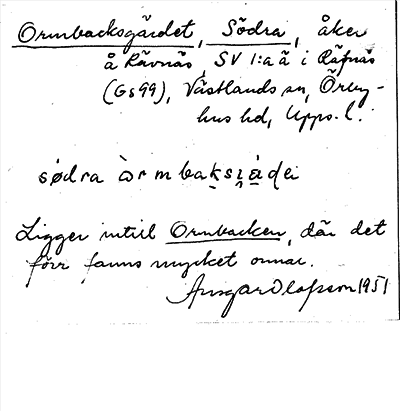 Ormbacksgärdet, Södra, åker
å Rävnäs, SV 1:a ä i Räfnäs
(Gs99), Västlands sn, Örby-
hus hd, Upps. l.
södra òrmbaksi̯àdei
Ligger intill Ormbacken, där det
förr fanns mycket ormar.
Ansgar Olofsson 1951